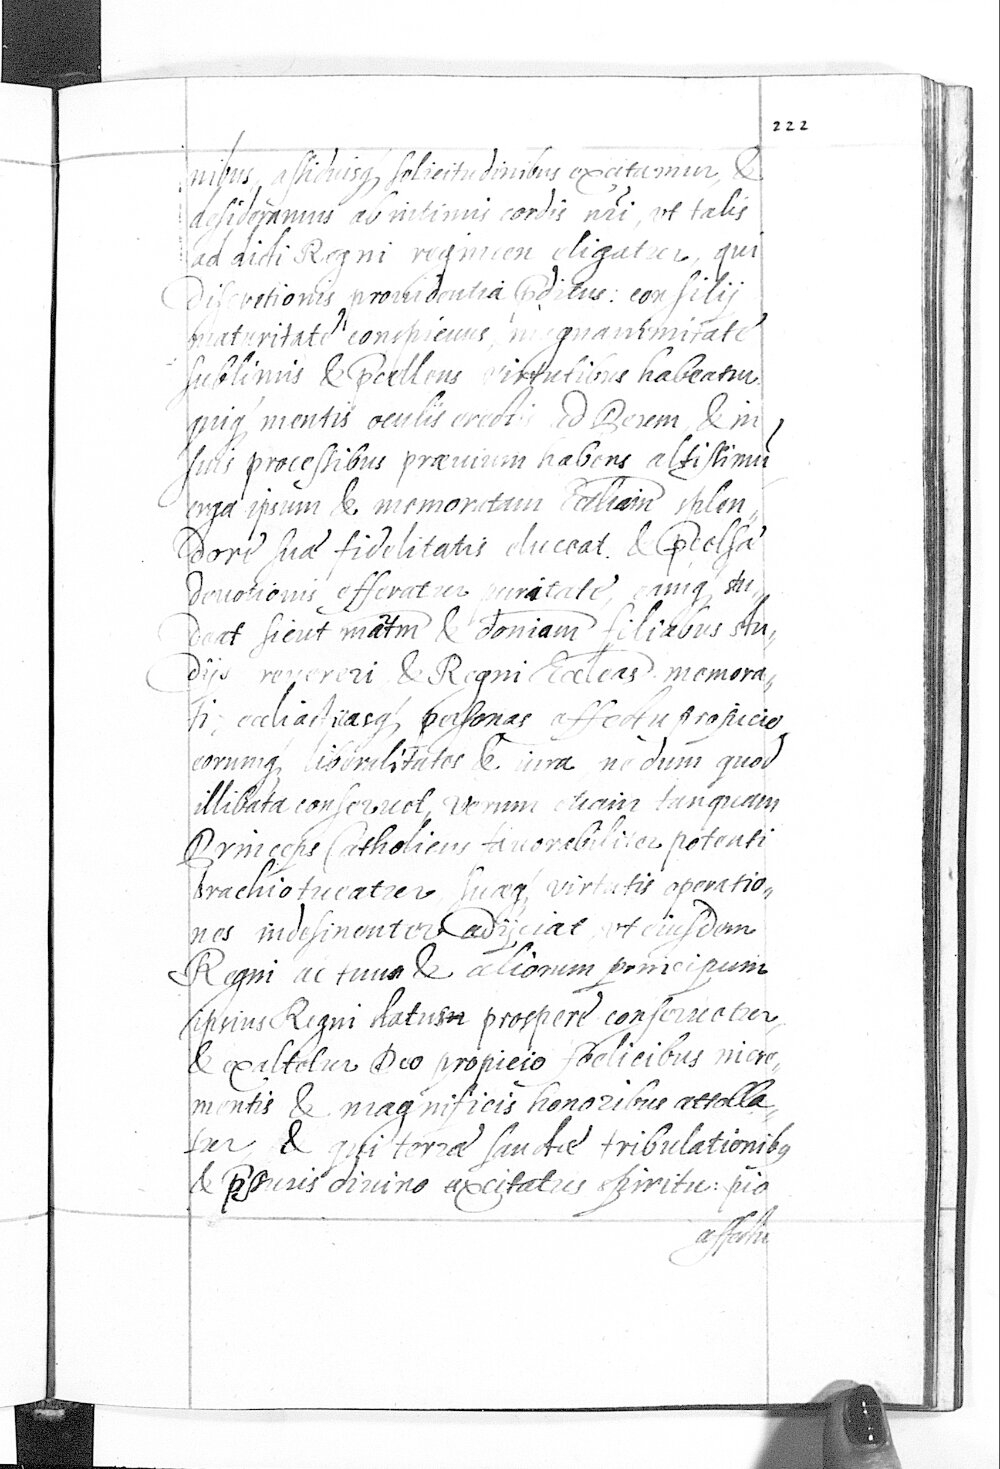 222
nibus, assiduisq, solicitudinibus excitamur, &
desideramus ab intimis cordis nri, vt talis
ad dicti Regni regimen eligatur, qui
discretionis prouidentia pditus: consilij
maturitate conspicuus, magnanimitate
sublimis & pcellens virtutibus habeatur
quiq mentis oculis erectis ad Deum, & in
suis processibus præuium habens altissimū
erga ipsum & memoratam Ecclliam splen„
dore suæ fidelitatis eluceat. & pcelsa
deuotionis efferatur puritate, eamq, stu„
deat sicut matrm & doniam filiabus stu„
dijs reuereri & Regni Eccleas memora„
ti, eccliasticasq, personas affectu propicio
eorumq libertates & iura ne dum quod
illibata conseruet, verum etiam tanquam
Princeps Catholicus fauorabiliter potenti
brachio tueatur, suæq, virtutis operatio„
nes indesinenter adijciat vt eiusdem
Regni ac tuus & aliorum principum
ipsius Regni status prospere conseruetur
& exaltetur Deo propicio foelicibus incre„
mentis & magnificis honoribus attolla„
tur, & qui terræ sanctæ tribulationibq
& pssuris diuino excitatus spiritu: pio
affectu